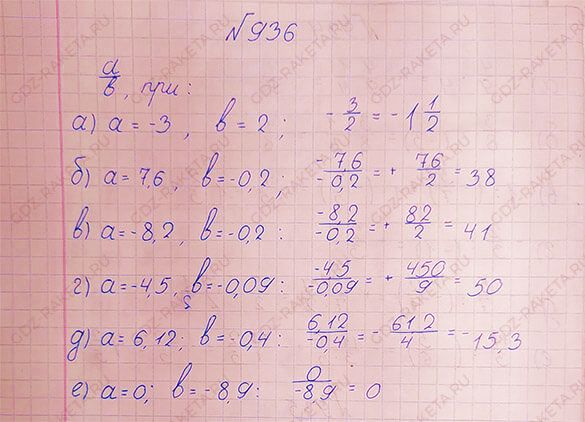 №936
a/в, при:
а) a = -3, в = 2; -3/2 = -1 1/2
б) a = 7,6, в = -0,2; -7,6/-0,2 = + 76/2 = 38
в) a = -8,2, в = -0,2: -8,2/-0,2 = + 82/2 = 41
г) a = -4,5, в = -0,09: -4,5/-0,09 = + 450/9 = 50
д) a = 6,12; в = -0,4: 6,12/-0,4 = - 61,2/4 = -15,3
е) a = 0; в = -8,9: 0/-8,9 = 0
GDZ-RAKETA.RU